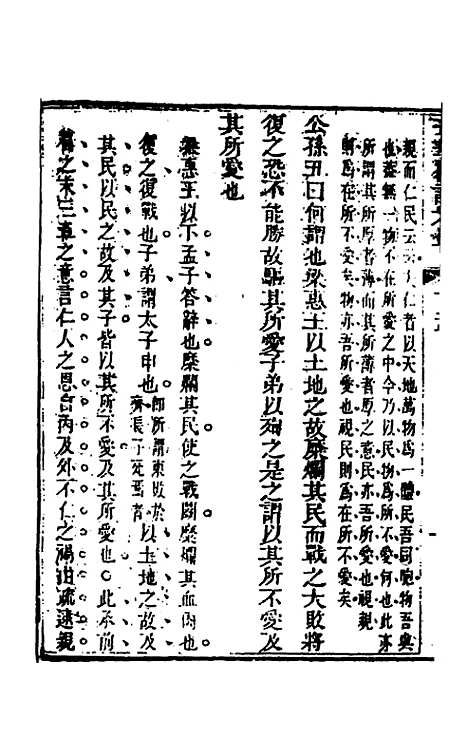 親而仁民云云夫仁者以天地萬物爲一體民吾同胞物吾與
也蓋無一物不在所愛之中今乃以民物爲所不愛何也此亦
所謂其所厚者薄而其所薄者厚之意民亦吾所愛也視親
則爲在所不愛矣物亦吾所愛也視民則爲在所不愛矣
公孫丑曰何謂也梁惠王以土地之故糜爛其民而戰之大敗將
復之恐不能勝故驅其所愛子弟以殉之是之謂以其所不愛及
其所愛也
梁惠王以下孟子答辭也糜爛其民使之戰鬭糜爛其血肉也
復之復戰也子弟謂太子申也
即所謂東敗於
齊長子死焉者
以土地之故及
其民以民之故及其子皆以其所不愛及其所愛也此承前
篇之末三章之意言仁人之恩自內及外不仁之禍由疏逮親